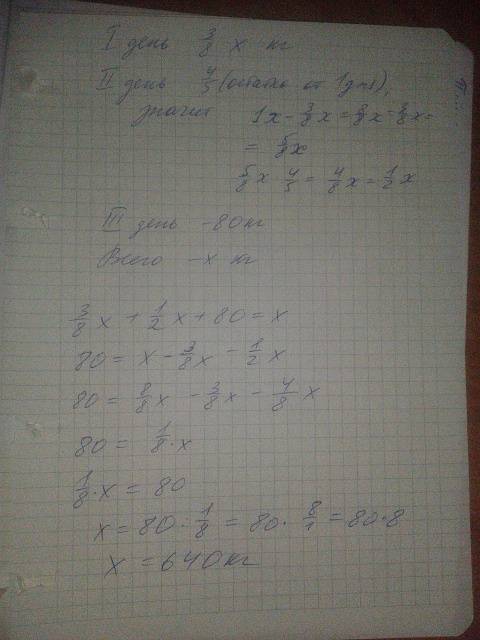 I день 3/8 x кг
II день 4/5 (остатка от 1 дня),
значит 1x - 3/8x = 8/8x - 3/8x =
= 5/8x
5/8x · 4/5 = 4/8x = 1/2x
III день - 80 кг
Всего - x кг
3/8x + 1/2x + 80 = x
80 = x - 3/8x - 1/2x
80 = 8/8x - 3/8x - 4/8x
80 = 1/8·x
1/8·x = 80
x = 80 : 1/8 = 80 · 8/1 = 80·8
x = 640 кг